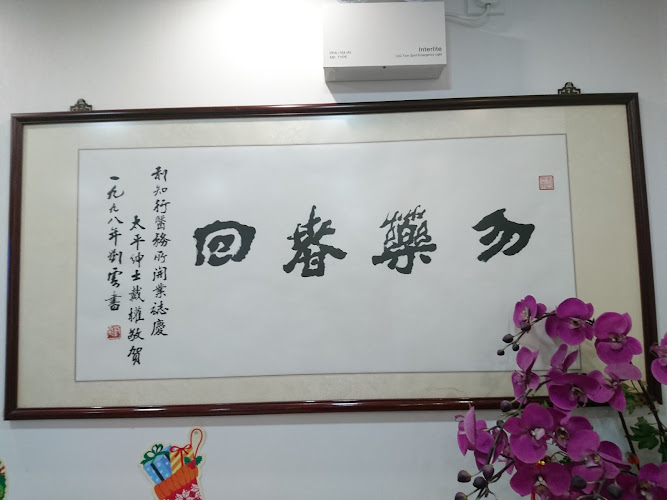 Interlite
LED Twin Spot Emergency Light
勿藥春回
利知行醫務所開業誌慶
太平紳士戴權敬賀
一九九八年劉雲書